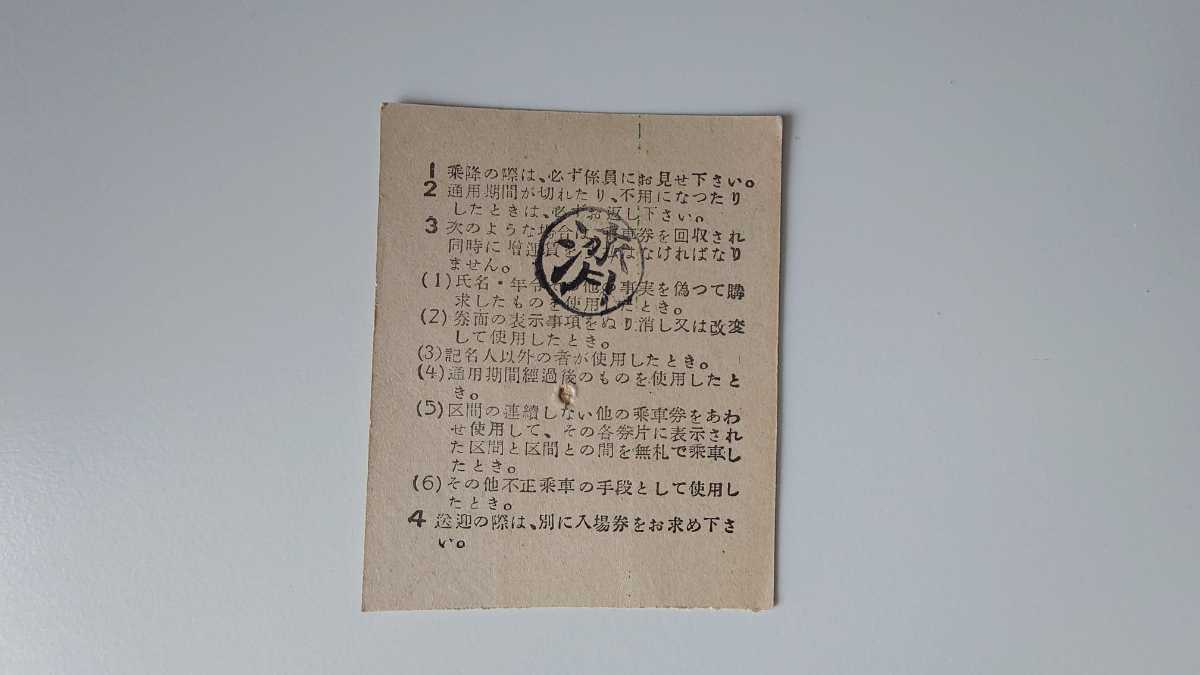 1 乗降の際は、必ず係員にお見せ下さい。
2 通用期間が切れたり、不用になつたり
したときは、必ずお返し下さい。
3 次のような場合は、車券を回収され
同時に増運賃を なければなり
ません。
(1) 氏名・年令 他の事実を偽つて購
求したものを使用したとき。
(2) 券面の表示事項をぬり消し又は改変
して使用したとき。
(3) 記名人以外の者が使用したとき。
(4) 通用期間経過後のものを使用したと
き。
(5) 区間の連続しない他の乗車券をあわ
せ使用して、その各券片に表示され
た区間と区間との間を無札で乗車し
たとき。
(6) その他不正乗車の手段として使用し
たとき。
4 送迎の際は、別に入場券をお求め下さ
い。